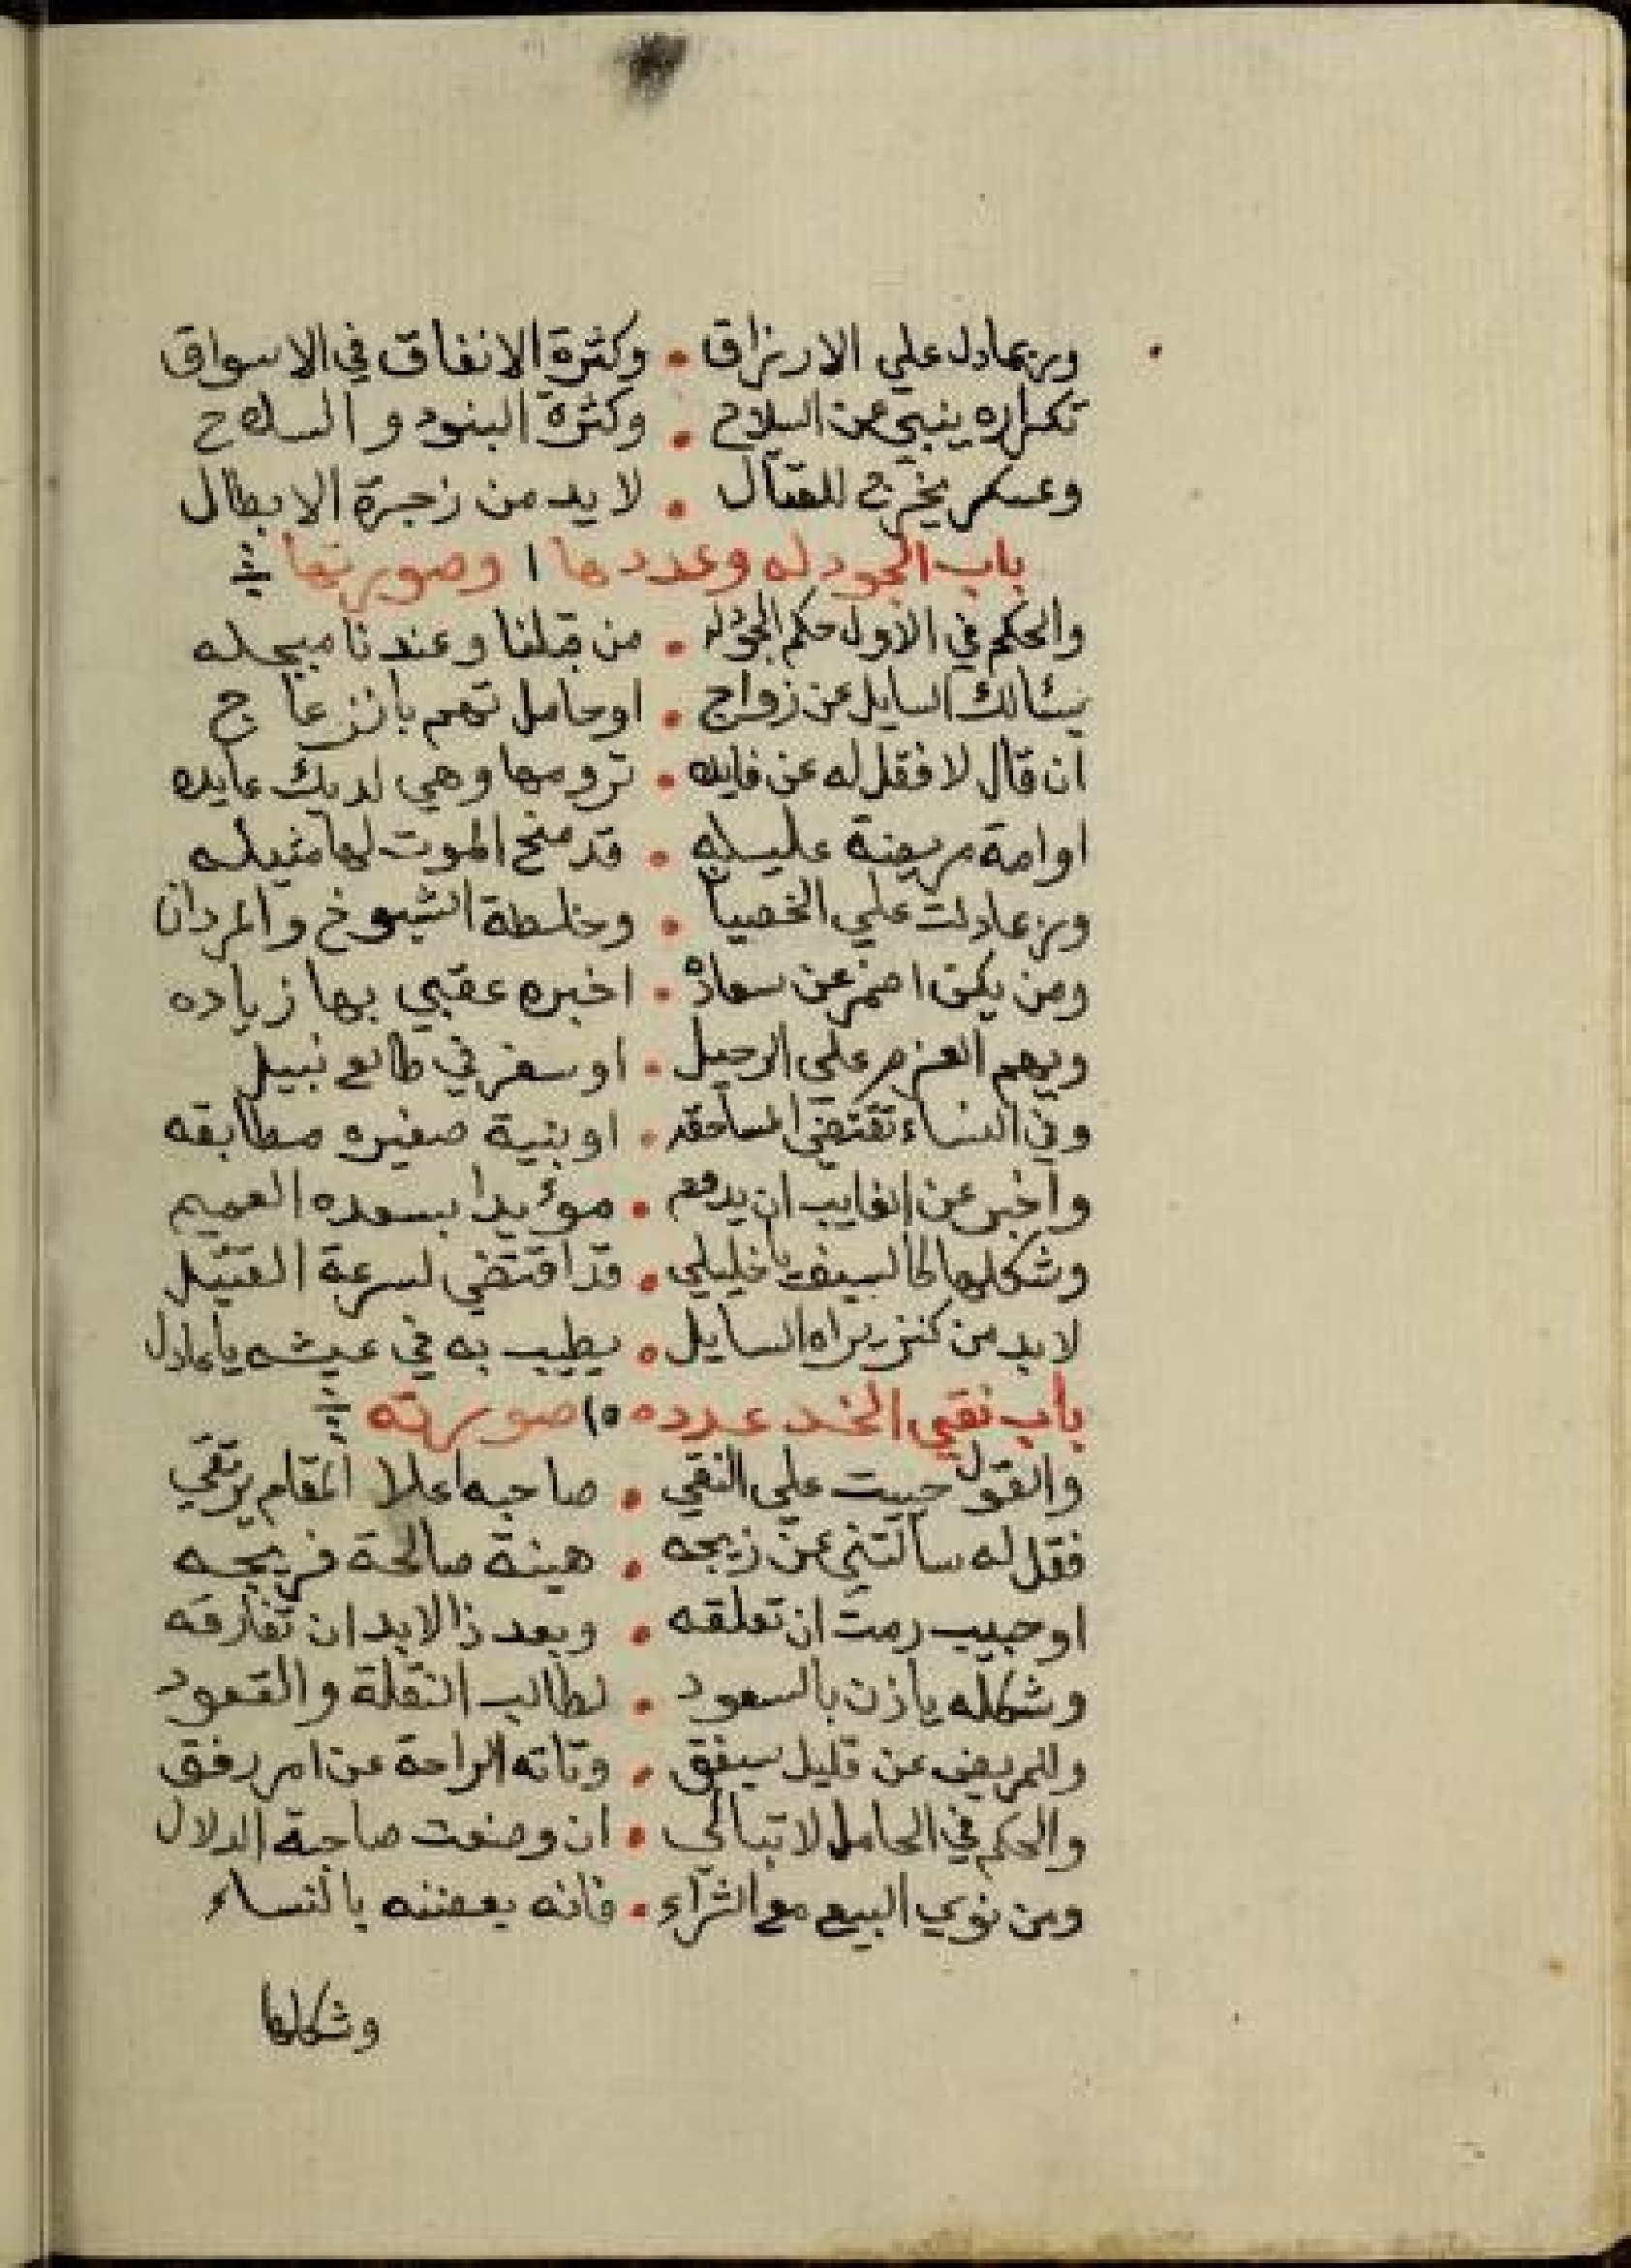 وربما دل علي الارزاق • وكثرة الانفاق في الاسواق
تكراره ينبي عن السلاح • وكثرة البنود والسلاح
وعسكر يخرج للقتال • لابد من زجرة الابطال
باب الجودله وعددها ١ وصورتها
والحكم في الاول حكم الجودله • من قبلنا وعندنا مبجله
يسئالك السايل عن زواج • او حامل تهم بانزعاج
ان قال لا فقل له عن فايده • ترومها وهي لديك عايده
او امة مريضة عليله • قد منح الموت لها مثيله
وربما دلت علي الخصيا • وخلطة الشيوخ والمردان
ومن يكن اضمر عن سعاده • اخبره عقبي بها زياده
ويهم العزم علي الرحيل • او سفر في طالع نبيل
وفي النساء تقتضي المساحقه • او بنية صغيره مطابقه
واخبر عن الغايب ان يدفعم • موئيدا بسعده العميم
وشكلها كالسيف يا خليلي • قد اقتضي لسرعة القتيل
لابد من كنز يراه السايل • يطيب به في عيشه يا عادل
باب نقي الخد عدده ١٥ صورته
والقول حييت علي النقي • صاحبه اعلا المقام يرتقي
فقل له سالتني عن زيجه • هينة صالحة فريجه
او حبيب رمت ان تعلقه • وبعد ذا لابد ان تفارقه
وشكله ياذن بالسعود • لطالب النقلة والقعود
وللمريض عن قليل سيفق • وتاته الراحة عن امر رفق
والحكم في الحامل لا تبالي • ان وضعت صاحبة الدلال
ومن نوي البيع مع الشراء • فانه بالنساء
وشكلها